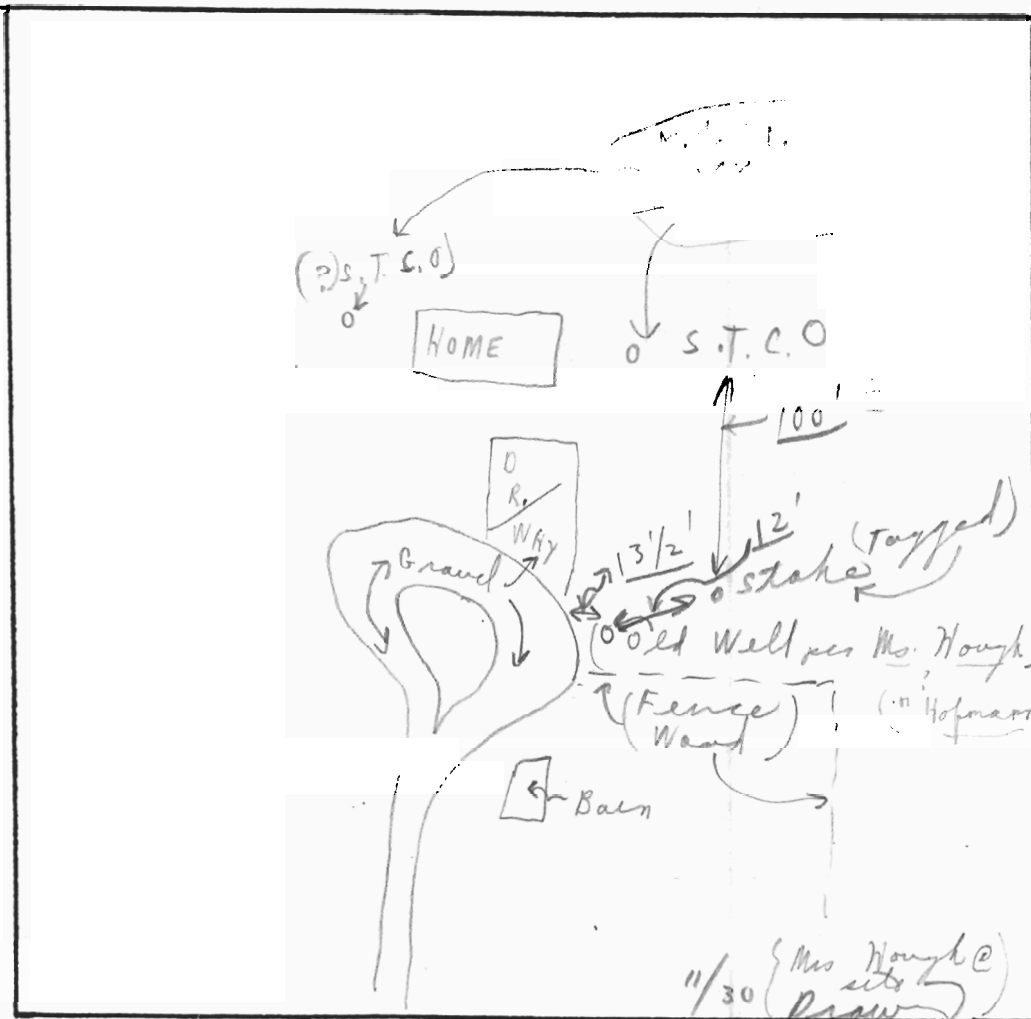 (?) S.T.S.O)
O
HOME
O S.T.C.O
100' ±
D
R.
WAY
Gravel
13 1/2'
12'
(Tagged)
o stake
(O Old Well per Ms. Hough,
(Fence
Wood)
Barn
11/30 (Mrs Hough @
site
Drawn)